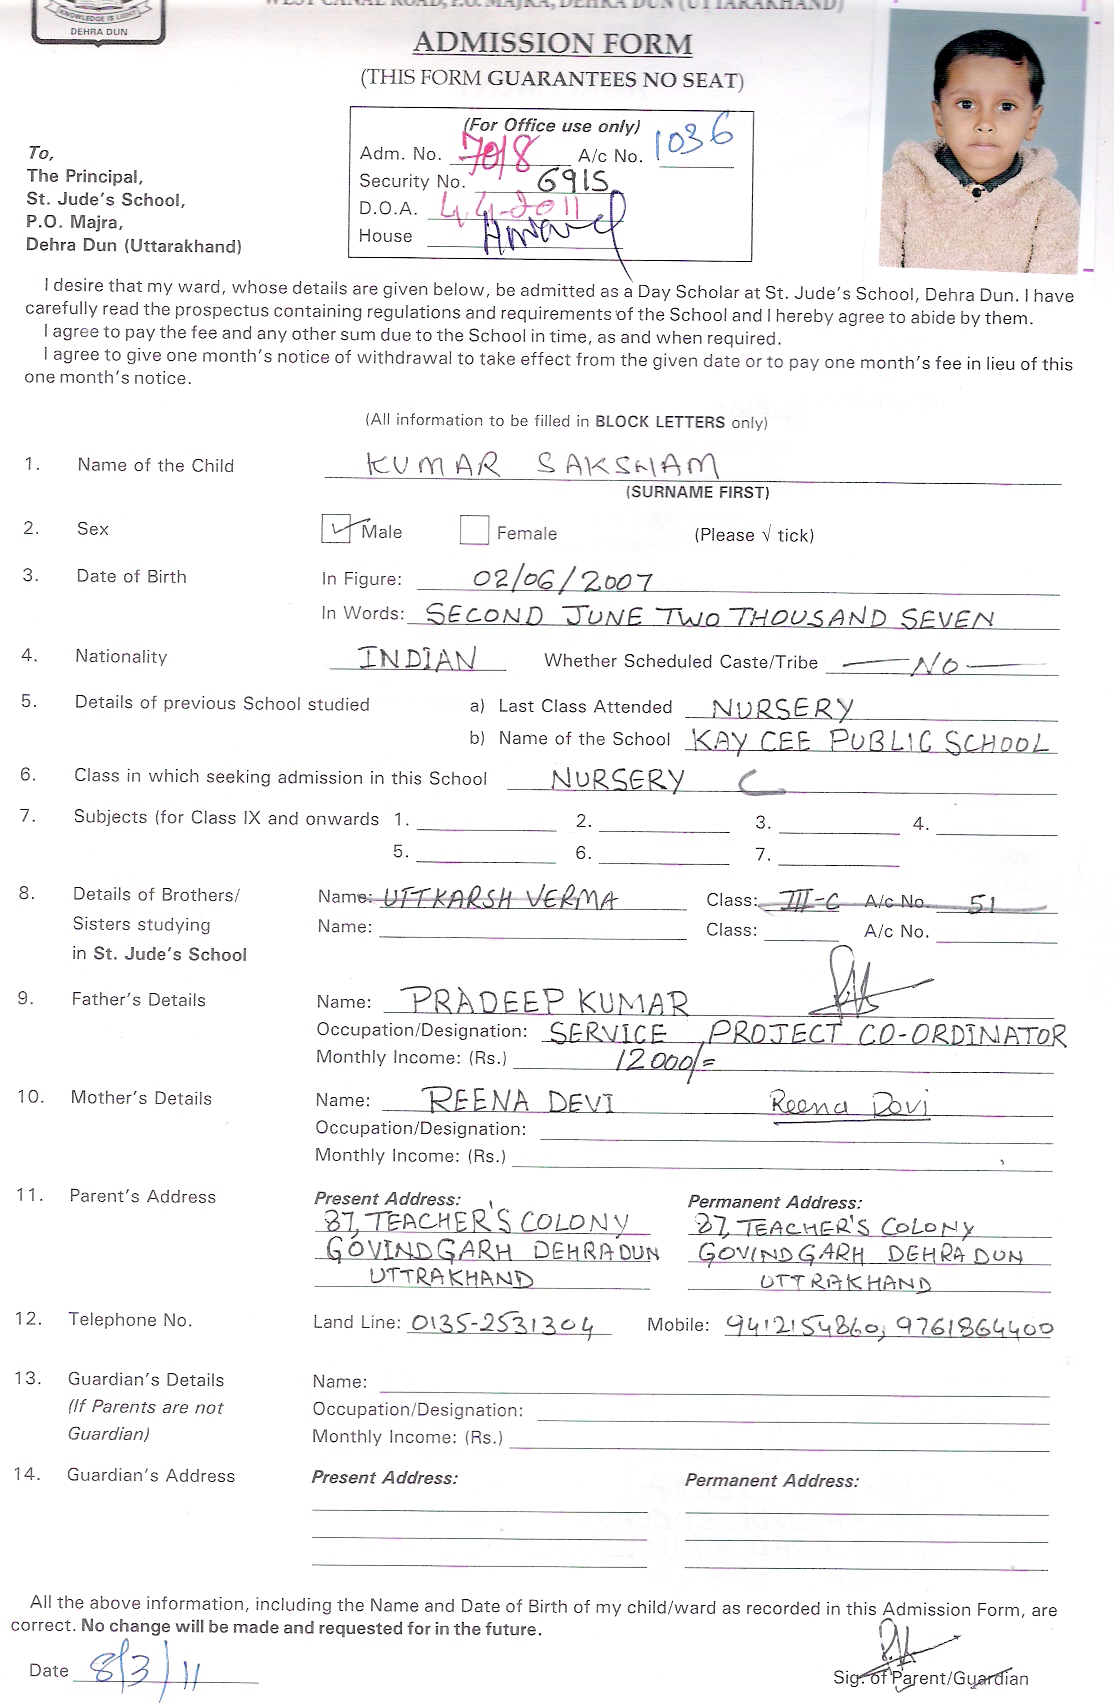 KNOWLEDGE IS LIGHT
DEHRA DUN
WEST CANAL ROAD, P.O. MAJRA, DEHRA DUN (UTTARAKHAND)
ADMISSION FORM
(THIS FORM GUARANTEES NO SEAT)
(For Office use only)
Adm. No. 7018 A/c No. 1036
Security No. 6915
D.O.A. 4.4-2011
House
To,
The Principal,
St. Jude's School,
P.O. Majra,
Dehra Dun (Uttarakhand)
I desire that my ward, whose details are given below, be admitted as a Day Scholar at St. Jude's School, Dehra Dun. I have
carefully read the prospectus containing regulations and requirements of the School and I hereby agree to abide by them.
I agree to pay the fee and any other sum due to the School in time, as and when required.
I agree to give one month's notice of withdrawal to take effect from the given date or to pay one month's fee in lieu of this
one month's notice.
(All information to be filled in BLOCK LETTERS only)
1. Name of the Child KUMAR SAKSHAM
(SURNAME FIRST)
2. Sex Male Female (Please √ tick)
3. Date of Birth In Figure: 02/06/2007
In Words: SECOND JUNE TWO THOUSAND SEVEN
4. Nationality INDIAN Whether Scheduled Caste/Tribe NO
5. Details of previous School studied a) Last Class Attended NURSERY
b) Name of the School KAY CEE PUBLIC SCHOOL
6. Class in which seeking admission in this School NURSERY C
7. Subjects (for Class IX and onwards 1. 2. 3. 4.
5. 6. 7.
8. Details of Brothers/ Name: UTTKARSH VERMA Class: III-C A/c No. 51
Sisters studying Name: Class: A/c No.
in St. Jude's School
9. Father's Details Name: PRADEEP KUMAR
Occupation/Designation: SERVICE, PROJECT CO-ORDINATOR
Monthly Income: (Rs.) 12000/=
10. Mother's Details Name: REENA DEVI Reena Devi
Occupation/Designation:
Monthly Income: (Rs.)
11. Parent's Address Present Address: Permanent Address:
37, TEACHER'S COLONY 37, TEACHER'S COLONY
GOVIND GARH DEHRADUN GOVIND GARH DEHRADUN
UTTRAKHAND UTTRAKHAND
12. Telephone No. Land Line: 0135-2531304 Mobile: 9412154860, 9761864400
13. Guardian's Details Name:
(If Parents are not Occupation/Designation:
Guardian) Monthly Income: (Rs.)
14. Guardian's Address Present Address: Permanent Address:
All the above information, including the Name and Date of Birth of my child/ward as recorded in this Admission Form, are
correct. No change will be made and requested for in the future.
Date 8/3/11 Sig. of Parent/Guardian